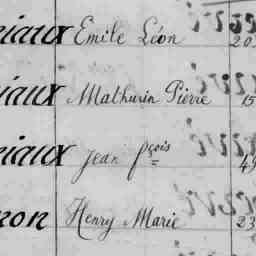 riaux Emile Léon 20
iaux Mathurin Pierre 15
riaux Jean fçois 49
non Henry Marie 23